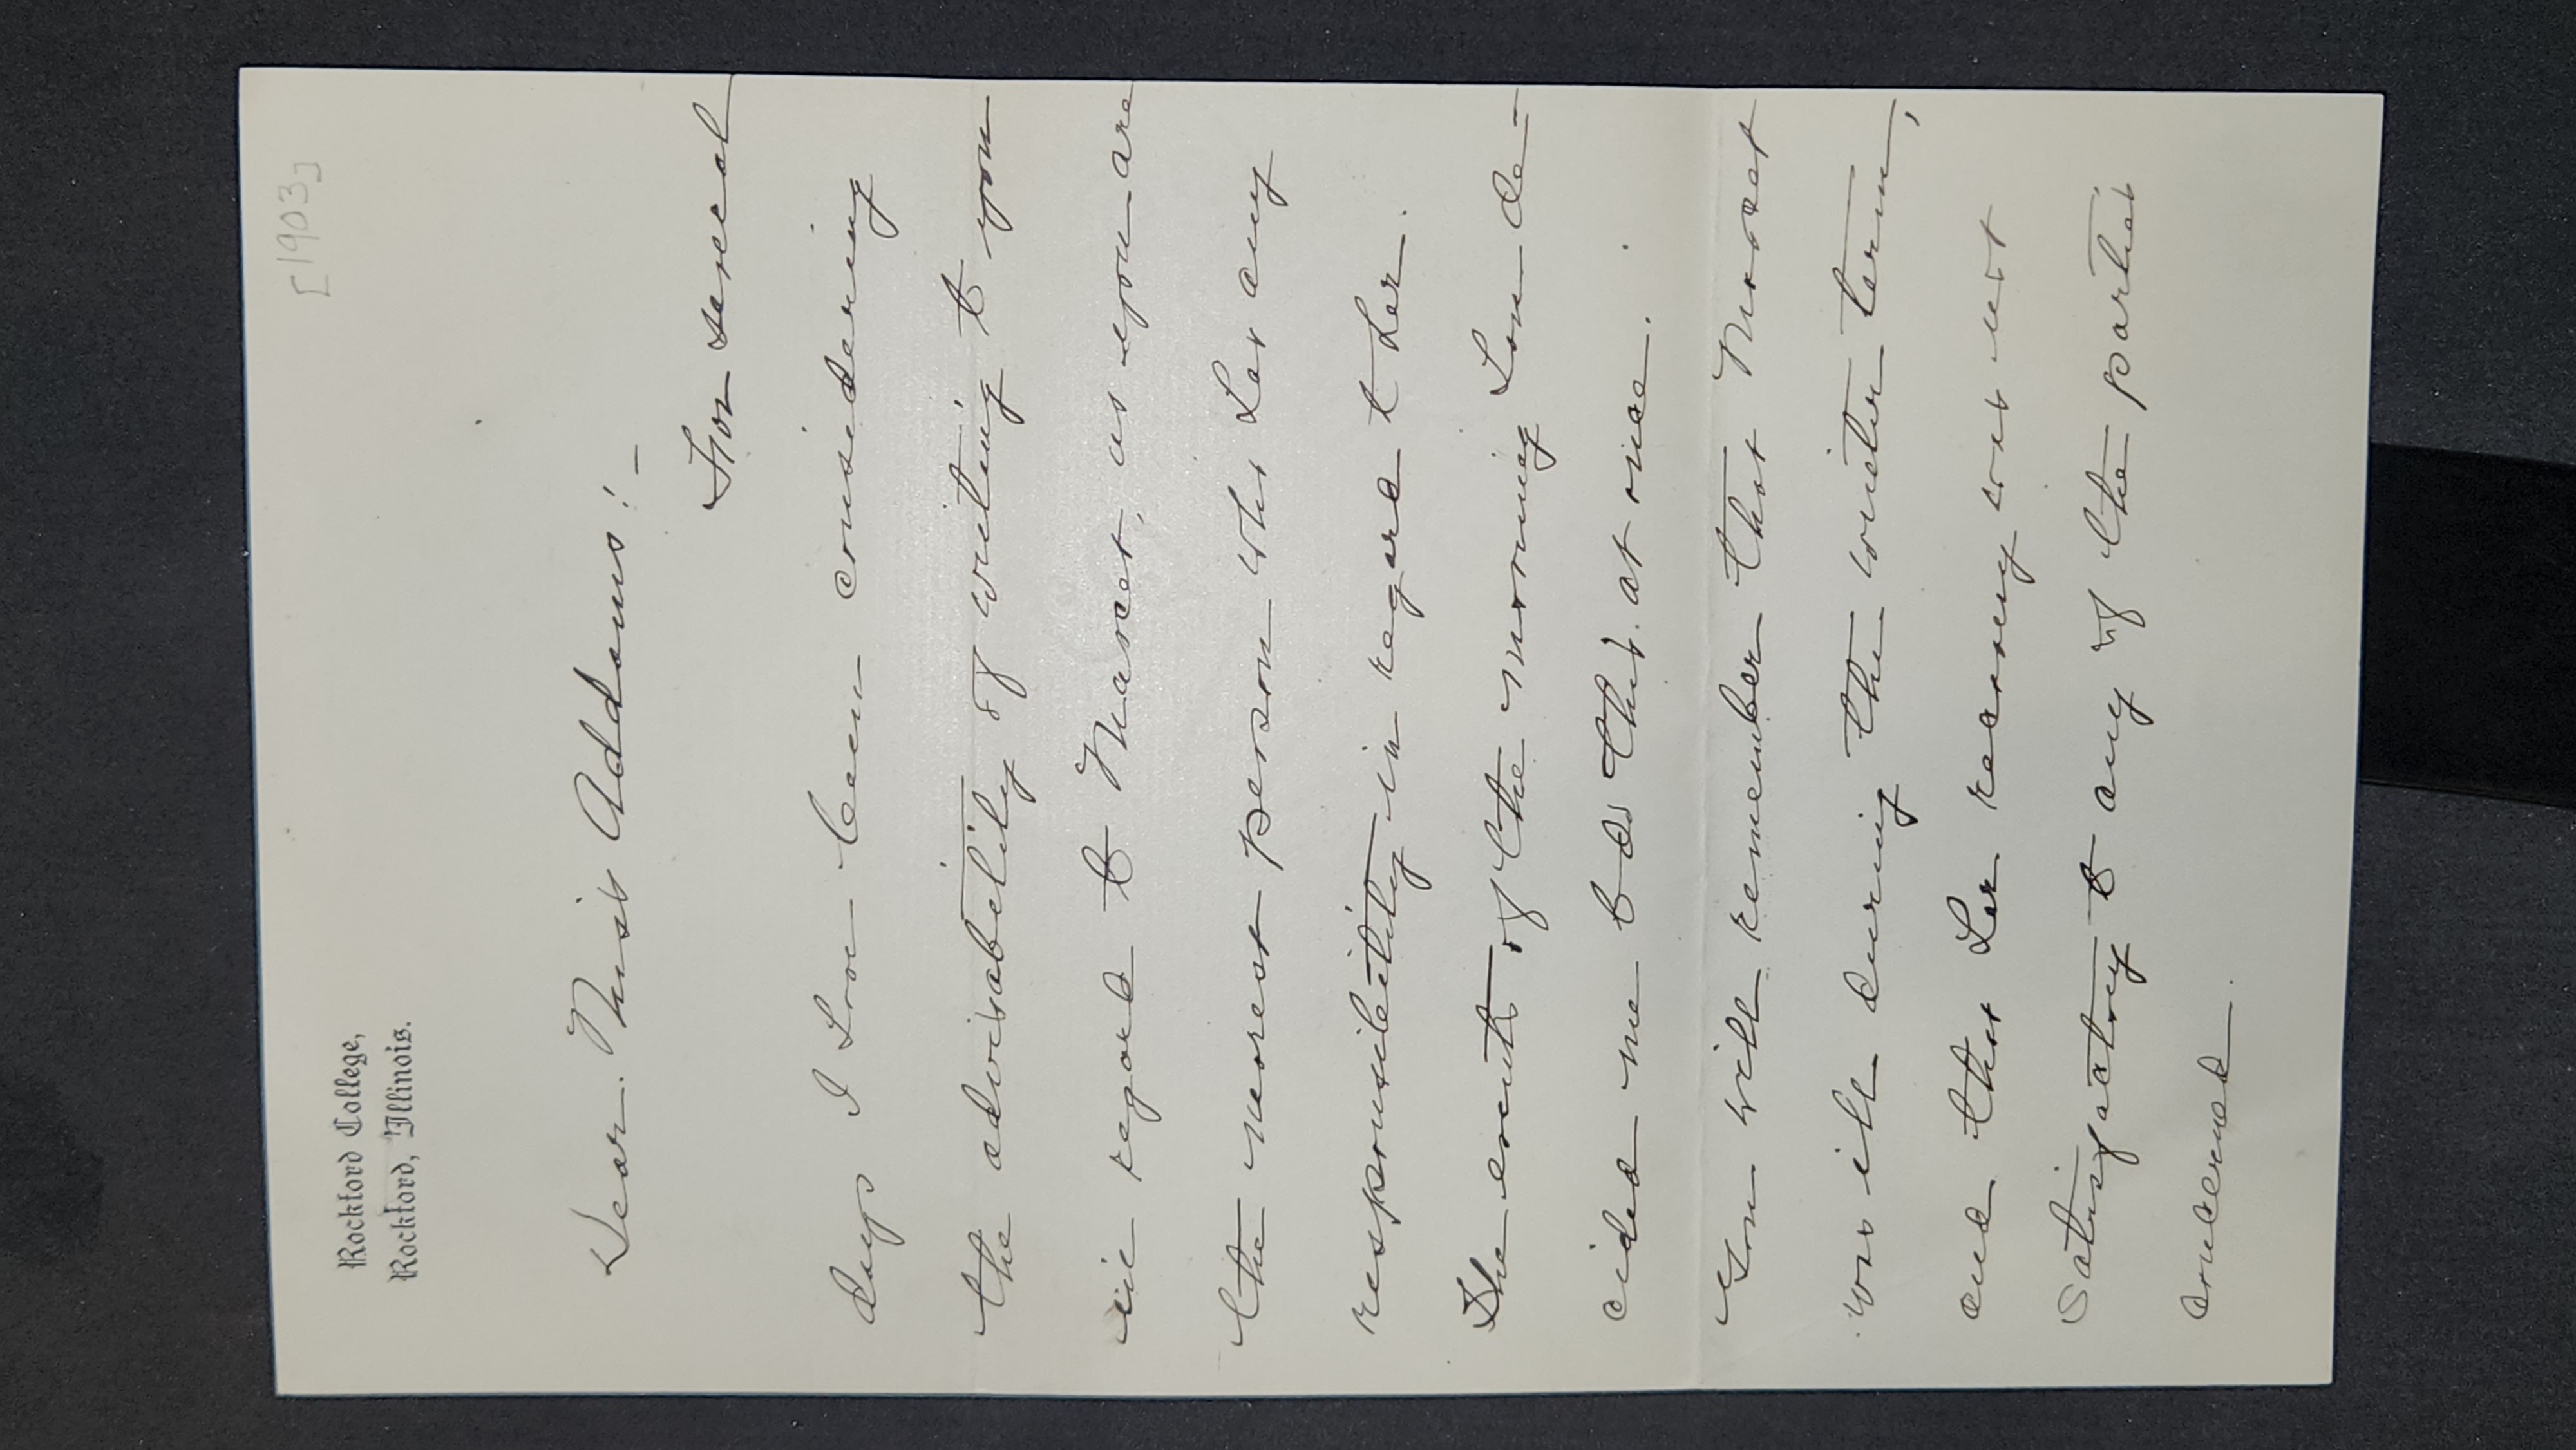 [1903]
Rockford College,
Rockford, Illinois.
Dear Miss Addams:-
For several
days I have been considering
the advisability of writing to you
in regard to Marcet, as you are
the nearest person who has any
responsibility in regard to her.
The events of the morning have de-
cided me to do this at once.
You will remember that Marcet
was ill during the winter term,
and that her recovery was not
satisfactory to any of the parties
concerned.